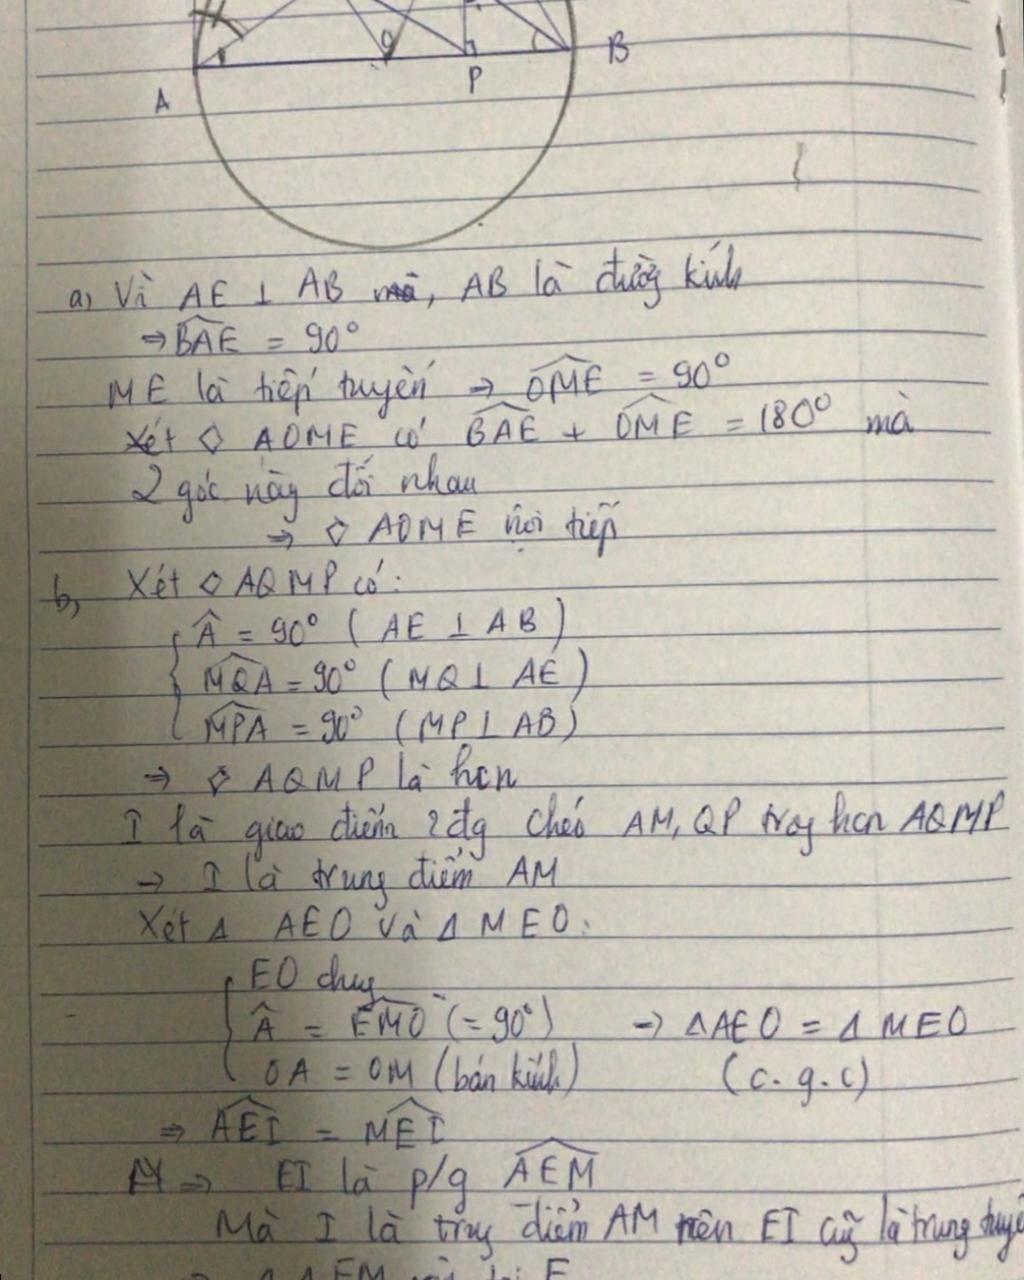 O
B
P
A
a, Vì AE ⊥ AB, AB là đường kính
⇒ BAE = 90°
ME là tiếp tuyến ⇒ OME = 90°
Xét ◇ AOME có BAE + OME = 180° mà
2 góc này đối nhau
⇒ ◇ AOME nội tiếp
b, Xét ◇ AQMP có:
Â = 90° ( AE ⊥ AB )
MQA = 90° ( MQ ⊥ AE )
MPA = 90° ( MP ⊥ AB )
⇒ ◇ AQMP là hcn
I là giao điểm 2 đg chéo AM, QP trog hcn AQMP
→ I là trung điểm AM
Xét Δ AEO và Δ MEO:
EO chug
Â = EMO (= 90°) → ΔAEO = Δ MEO
OA = OM (bán kính) (c.g.c)
⇒ AEI = MEI
⇒ EI là p/g AEM
Mà I là trug điểm AM nên EI cũg là trung tuyế